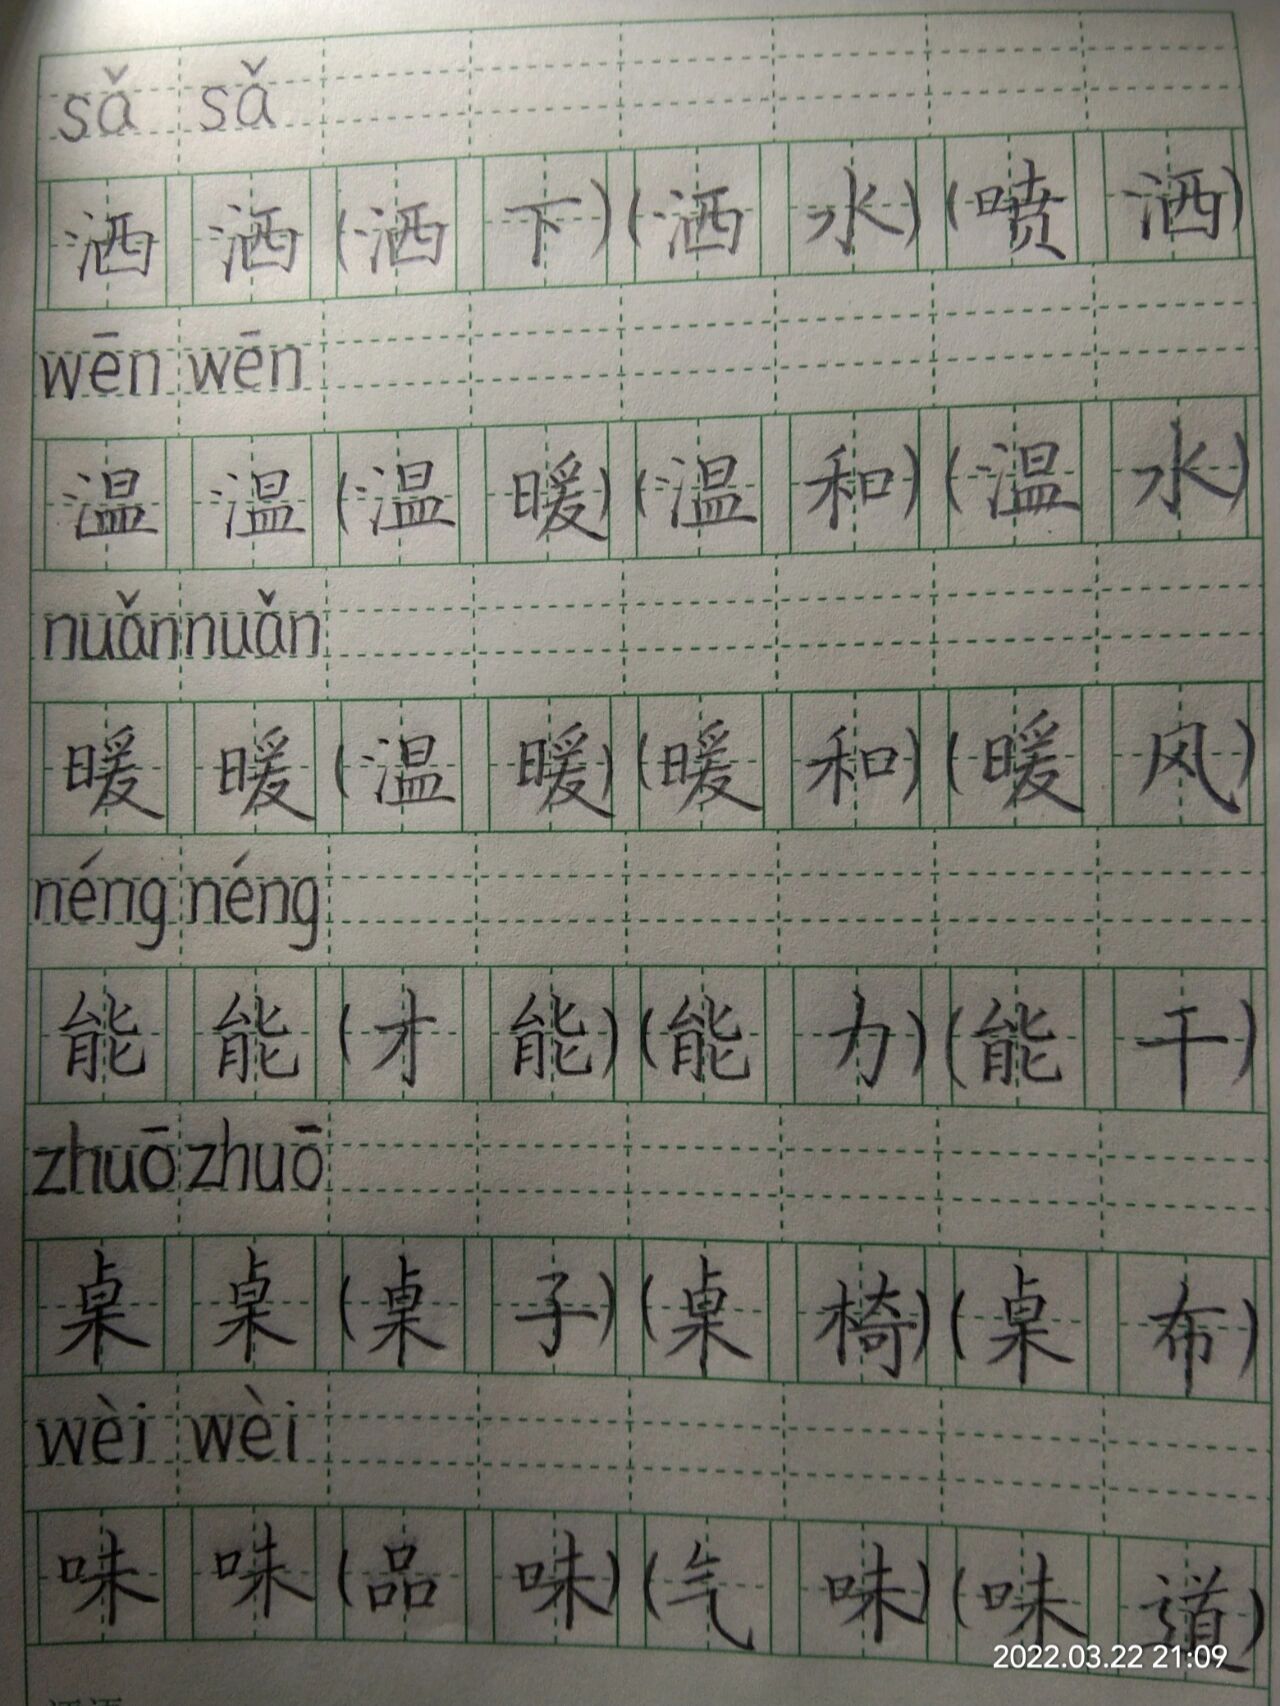 sǎ sǎ
洒 洒 (洒 下) (洒 水) (喷 洒)
wēn wēn
温 温 (温 暖) (温 和) (温 水)
nuǎn nuǎn
暖 暖 (温 暖) (暖 和) (暖 风)
néng néng
能 能 (才 能) (能 力) (能 干)
zhuō zhuō
桌 桌 (桌 子) (桌 椅) (桌 布)
wèi wèi
味 味 (品 味) (气 味) (味 道)
2022.03.22 21:09